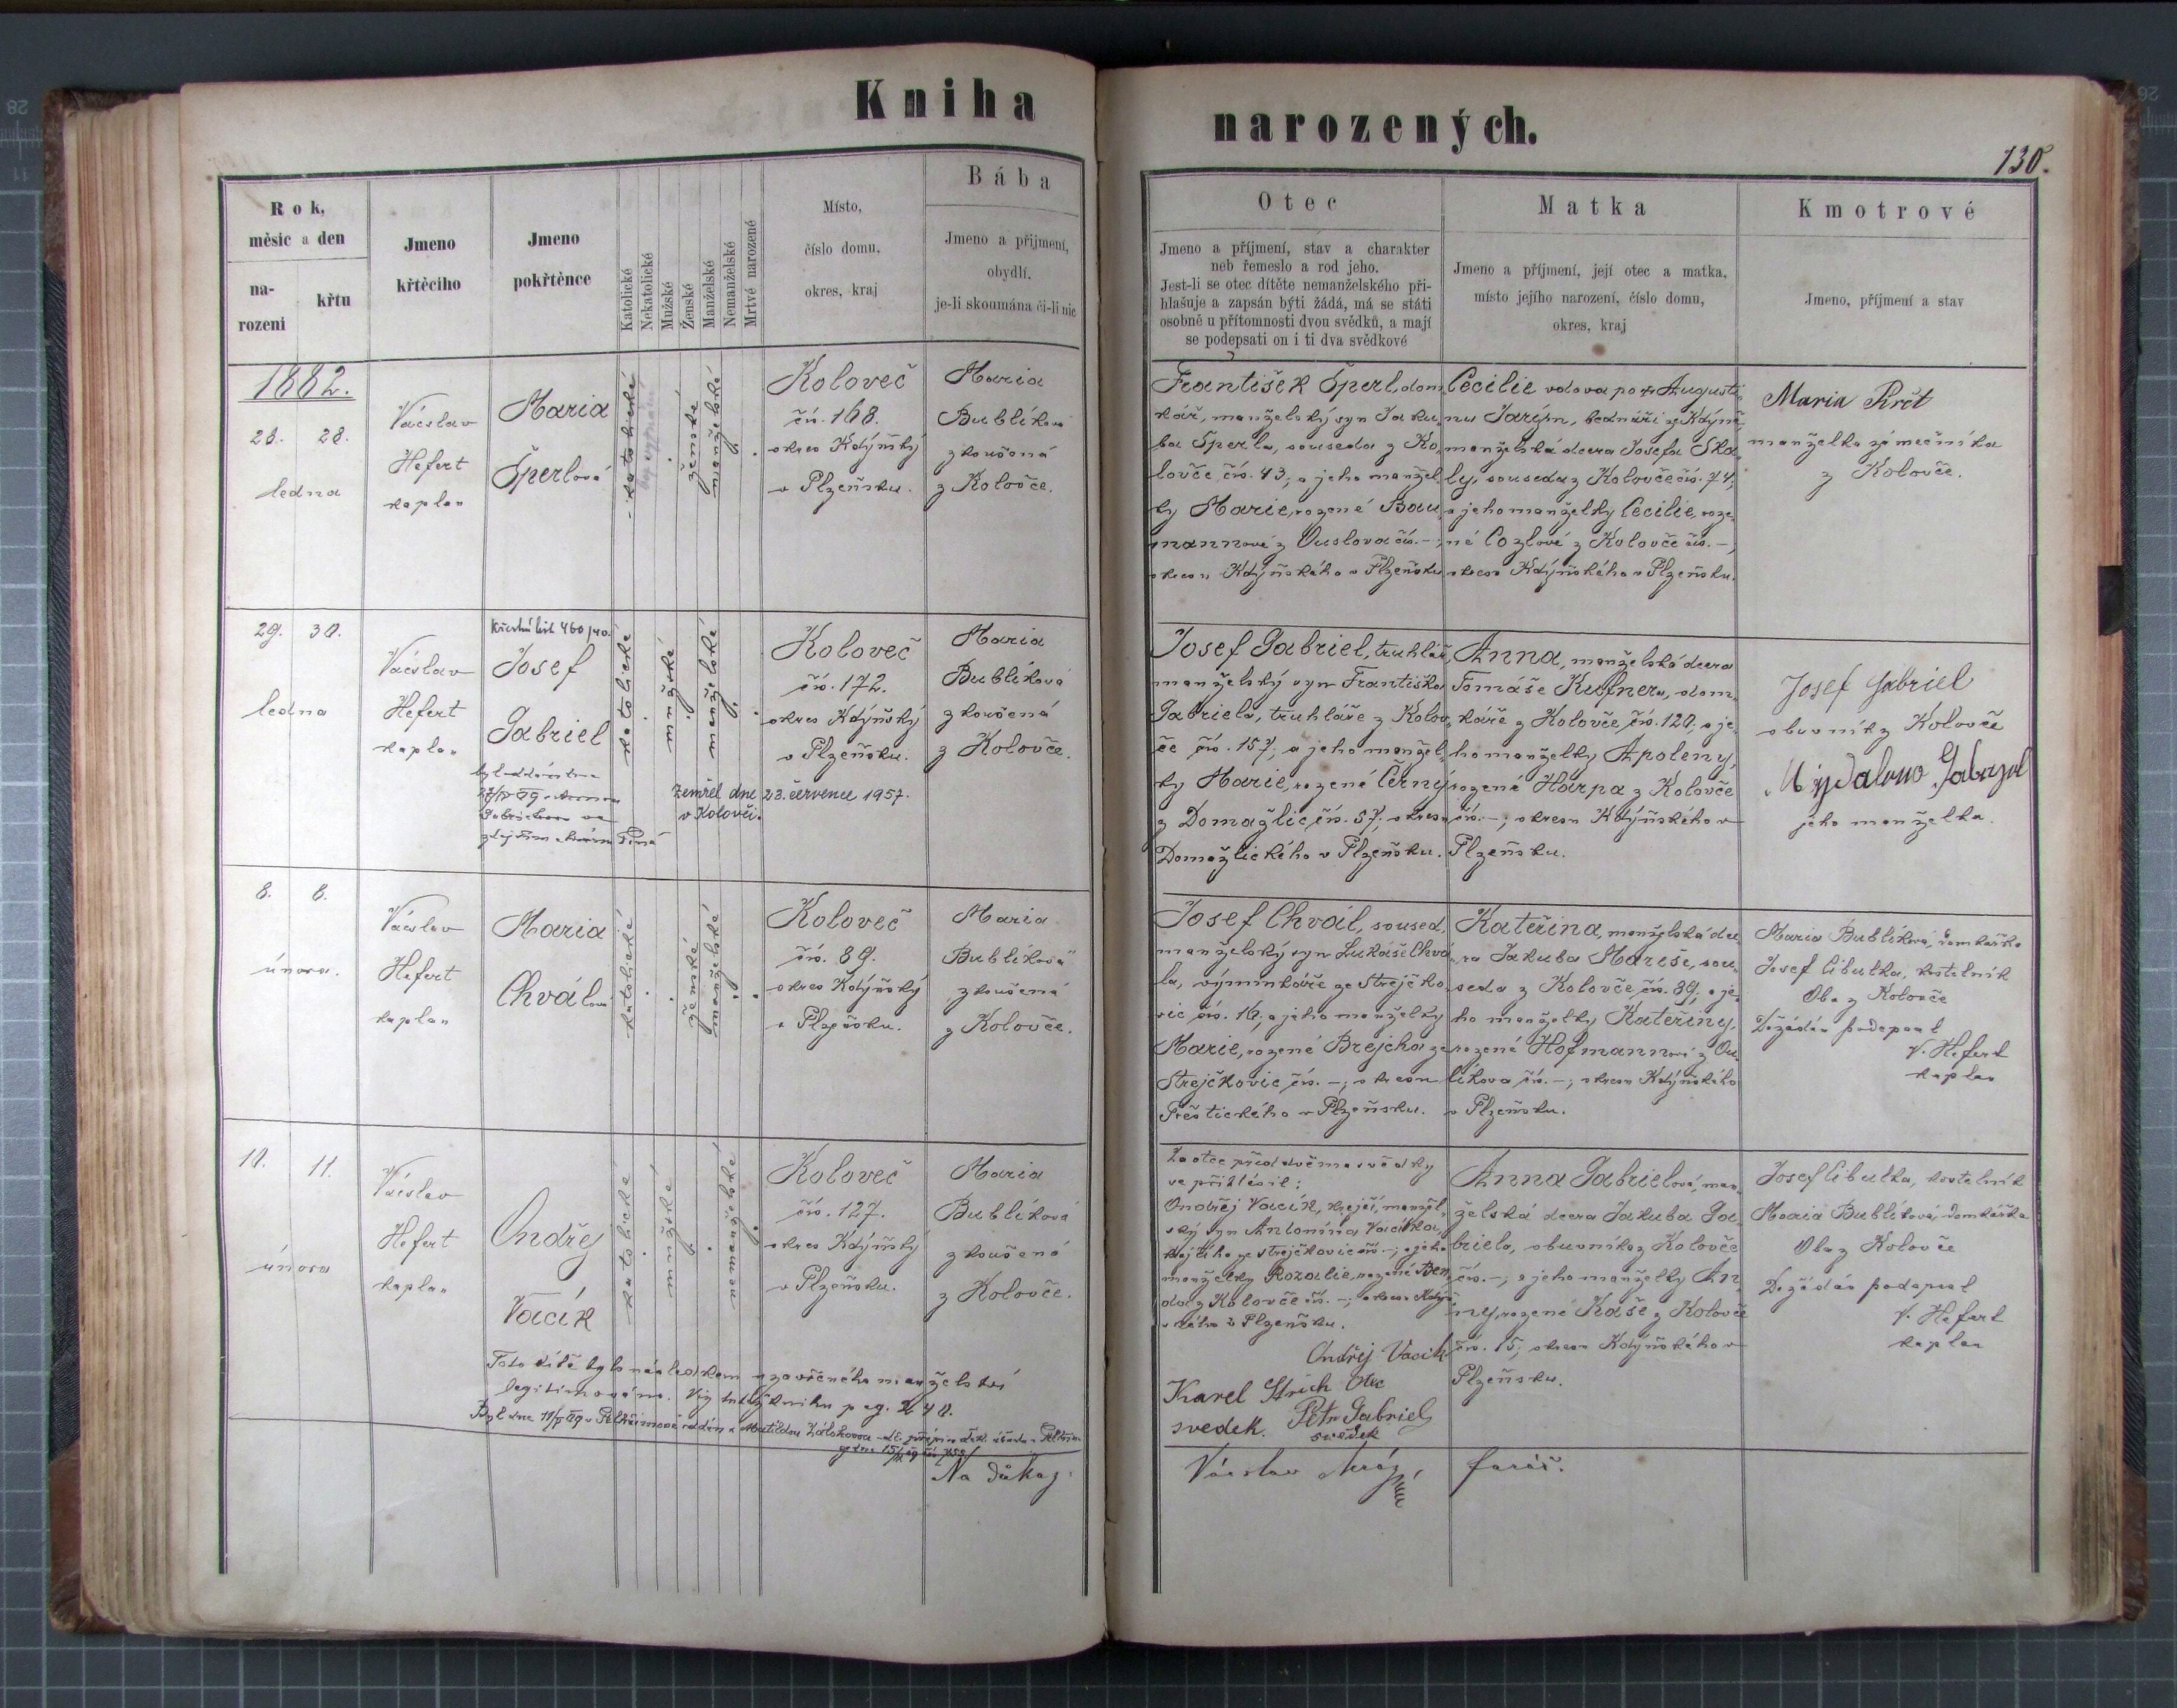 Kniha
narozených.
130.
Rok,
měsíc a den
na-
rození
křtu
Jmeno
křtěcího
Jmeno
pokřtěnce
Katolické
Nekatolické
Mužské
Ženské
Manželské
Nemanželské
Mrtvě narozené
Místo,
číslo domu,
okres, kraj
Bába
Jmeno a přijmení,
obydlí.
je-li skoumána či-li nic
Otec
Jmeno a příjmení, stav a charakter
neb řemeslo a rod jeho.
Jest-li se otec dítěte nemanželského při-
hlašuje a zapsán býti žádá, má se státi
osobně u přítomnosti dvou svědků, a mají
se podepsati on i ti dva svědkové
Matka
Jmeno a příjmení, její otec a matka,
místo jejího narození, číslo domu,
okres, kraj
Kmotrové
Jmeno, příjmení a stav
1882.
28. 28.
ledna
Václav
Hefert
kaplan
Maria
Šperlová
katolické
ženské
manželské
Koloveč
čís. 168.
okres Kdýňský
v Plzeňsku.
Maria
Bublíková
zkoušená
z Kolovče.
František Šperl, dom-
kář, manželský syn Jaku-
ba Šperla, souseda z Ko-
lovče čís. 43; a jeho manžel-
ky Marie, rozené Bau-
mannové z Ouslova čís. -;
okresu Kdýňského v Plzeňsku
Cecilie vdova po + Augusti-
nu Jarým, bednáři ze Kdýně,
manželská dcera Josefa Ska-
ly, souseda z Kolovče čís. 74;
a jeho manželky Cecilie, roze-
né Cozlové z Kolovče čís. -;
okresu Kdýňského v Plzeňsku.
Maria Krčt
manželka zámečníka
z Kolovče.
29. 30.
ledna
Václav
Hefert
kaplan
Křestní list 460/40.
Josef
Gabriel
katolické
mužské
manželské
Zemřel dne 23. července 1957.
v Kolovči.
Koloveč
čís. 172.
okres Kdýňský
v Plzeňsku.
Maria
Bublíková
zkoušená
z Kolovče.
Josef Gabriel, truhlář,
manželský syn Františka
Gabriela, truhláře z Kolov-
če čís. 157; a jeho manžel-
ky Marie, rozené Černý
z Domažlic čís. 57; okresu
Domažlického v Plzeňsku.
Anna, manželská dcera
Tomáše Kufnera, dom-
káře z Kolovče, čís. 120; a je-
ho manželky Apoleny,
rozené Harpa z Kolovče
čís. -; okresu Kdýňského v
Plzeňsku.
Josef Gabriel
obuvník z Kolovče
jeho manželka.
8. 8.
února.
Václav
Hefert
kaplan
Maria
Chválová
katolické
ženské
manželské
Koloveč
čís. 89.
okres Kdýňský
v Plzeňsku.
Maria
Bublíková
zkoušená
z Kolovče.
Josef Chvál, soused,
manželský syn Lukáše Chvá-
la, výminkáře ze Strejčko-
vic čís. 16; a jeho manželky
Marie, rozené Brejcha ze
Strejčkovic čís. -; okresu
Přeštického v Plzeňsku.
Kateřina, manželská dce-
ra Jakuba Mareše, sou-
seda z Kolovče čís. 89; a je-
ho manželky Kateřiny,
rozené Hofmannové z Ou-
líkova čís. -; okresu Kdýňského
v Plzeňsku.
Maria Bublíková, domkářka
Josef Cibulka, kostelník
Oba z Kolovče
Dožádán podepsal
V. Hefert
kaplan
10. 11.
února
Václav
Hefert
kaplan
Ondřej
Vacík
katolické
mužské
nemanželské
Koloveč
čís. 127.
okres Kdýňský
v Plzeňsku.
Maria
Bublíková
zkoušená
z Kolovče.
Za otce před dvěma svědky
se přihlásil:
Ondřej Vacík, krejčí, manžel-
ský syn Antonína Vacíka,
krejčího ze Strejčkovic čís. -; a jeho
manželky Rozalie, rozené Ben-
da z Kolovče čís. -; okresu Kdýň-
ského v Plzeňsku.
Ondřej Vacik
Otec
Karel Strich
svedek.
Petr Gabriel
svědek
Anna Gabrielová, man-
želská dcera Jakuba Ga-
briela, obuvníka z Kolovče
čís. -; a jeho manželky An-
ny, rozené Kaše z Kolovče
čís. 15; okresu Kdýňského v
Plzeňsku.
Josef Cibulka, kostelník
Maria Bublíková, domkářka
Oba z Kolovče
Dožádán podepsal
V. Hefert
kaplan
Toto dítě bylo následkem uzavřeného manželství
legitimováno. Viz tutéž knihu pag. 240.
Na důkaz:
Václav Mráz,
farář.